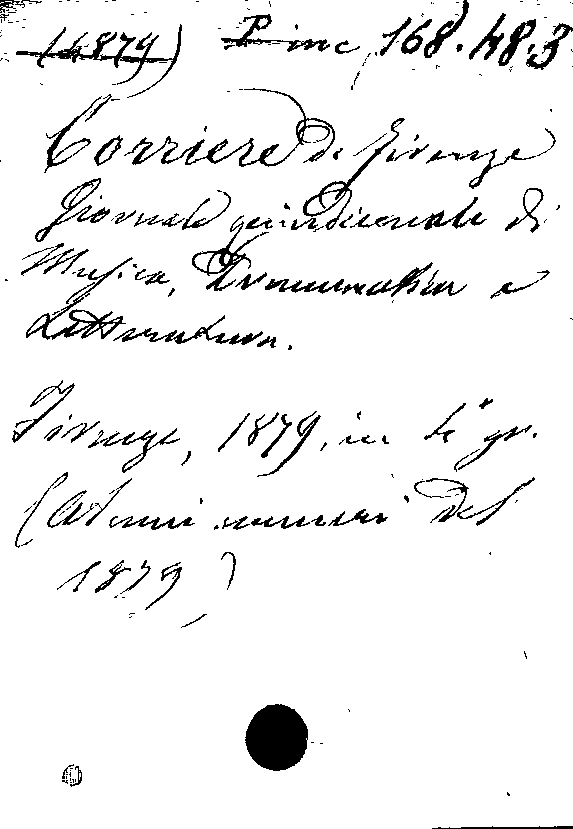 (1879) P inc 168.48.3
Corriere di Firenze
Giornale quindicinale di
Musica, Drammatica e
Letteratura.
Firenze, 1879, in 4° gr.
(Alcuni numeri del
1879)